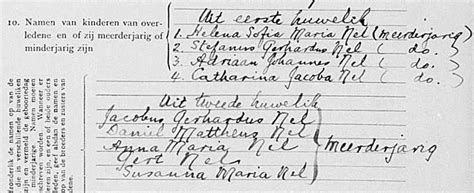 10. Namen van kinderen van over-
ledene en of zij meerderjarig of
minderjarig zijn
Uit eerste huwelik
1. Helena Sofia Maria Nel (meerderjarig)
2. Stefanus Gerhardus Nel ( do. )
3. Adriaan Johannes Nel ( do. )
4. Catharina Jacoba Nel ( do. )
Uit tweede huwelik
Jacobus Gerhardus Nel
Daniel Mattheuz Nel
Anna Maria Nel
Gert Nel
Susanna Maria Nel
meerderjarig